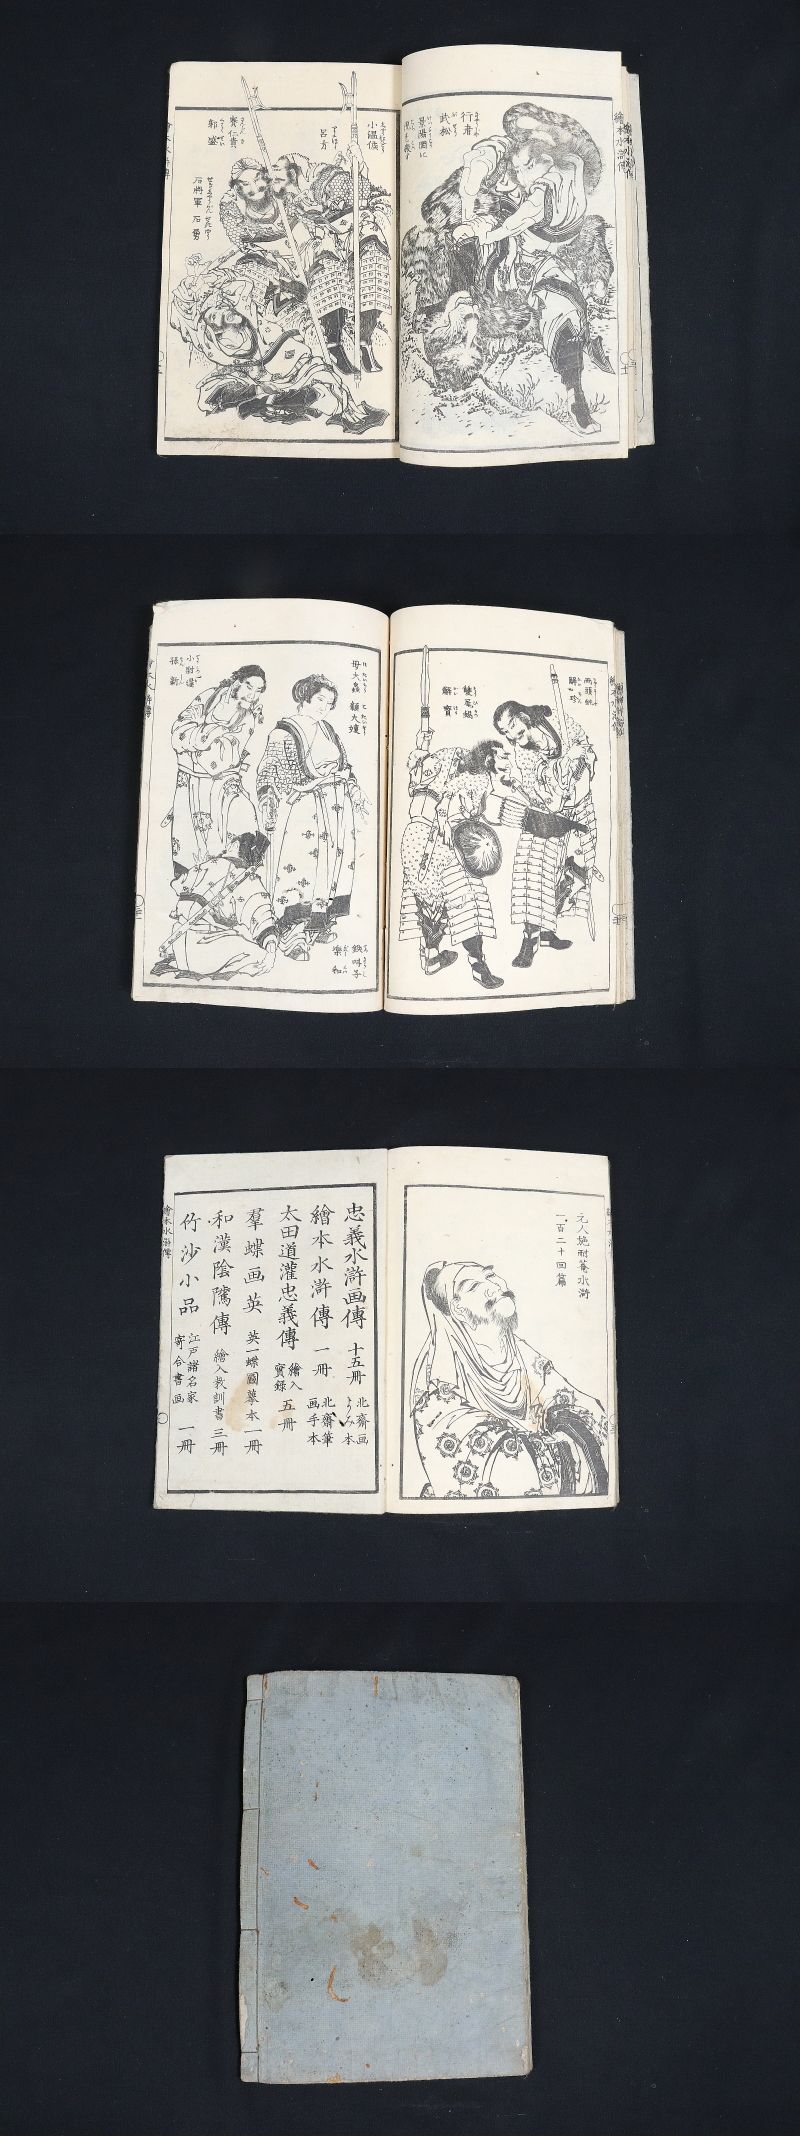 繪本水滸傳
行者
武松
景陽岡に
小温侯
呂方
賽仁貴
郭盛
石將軍 石勇
両頭蛇
解珍
雙尾蝎
解寳
母大蟲 顧大嫂
小尉遲
孫新
鉄叫子
樂和
元人施耐菴水滸
一百二十回篇
忠義水滸画傳 十五冊 北斎画 よみ本
繪本水滸傳 一冊 北齋筆 画手本
太田道灌忠義傳 繪入 實録 五冊
羣蝶画英 英一蝶圖摹本 一冊
和漢陰隲傳 繪入教訓書 三冊
竹沙小品 江戸諸名家 寄合書画 一冊
繪本水滸傳